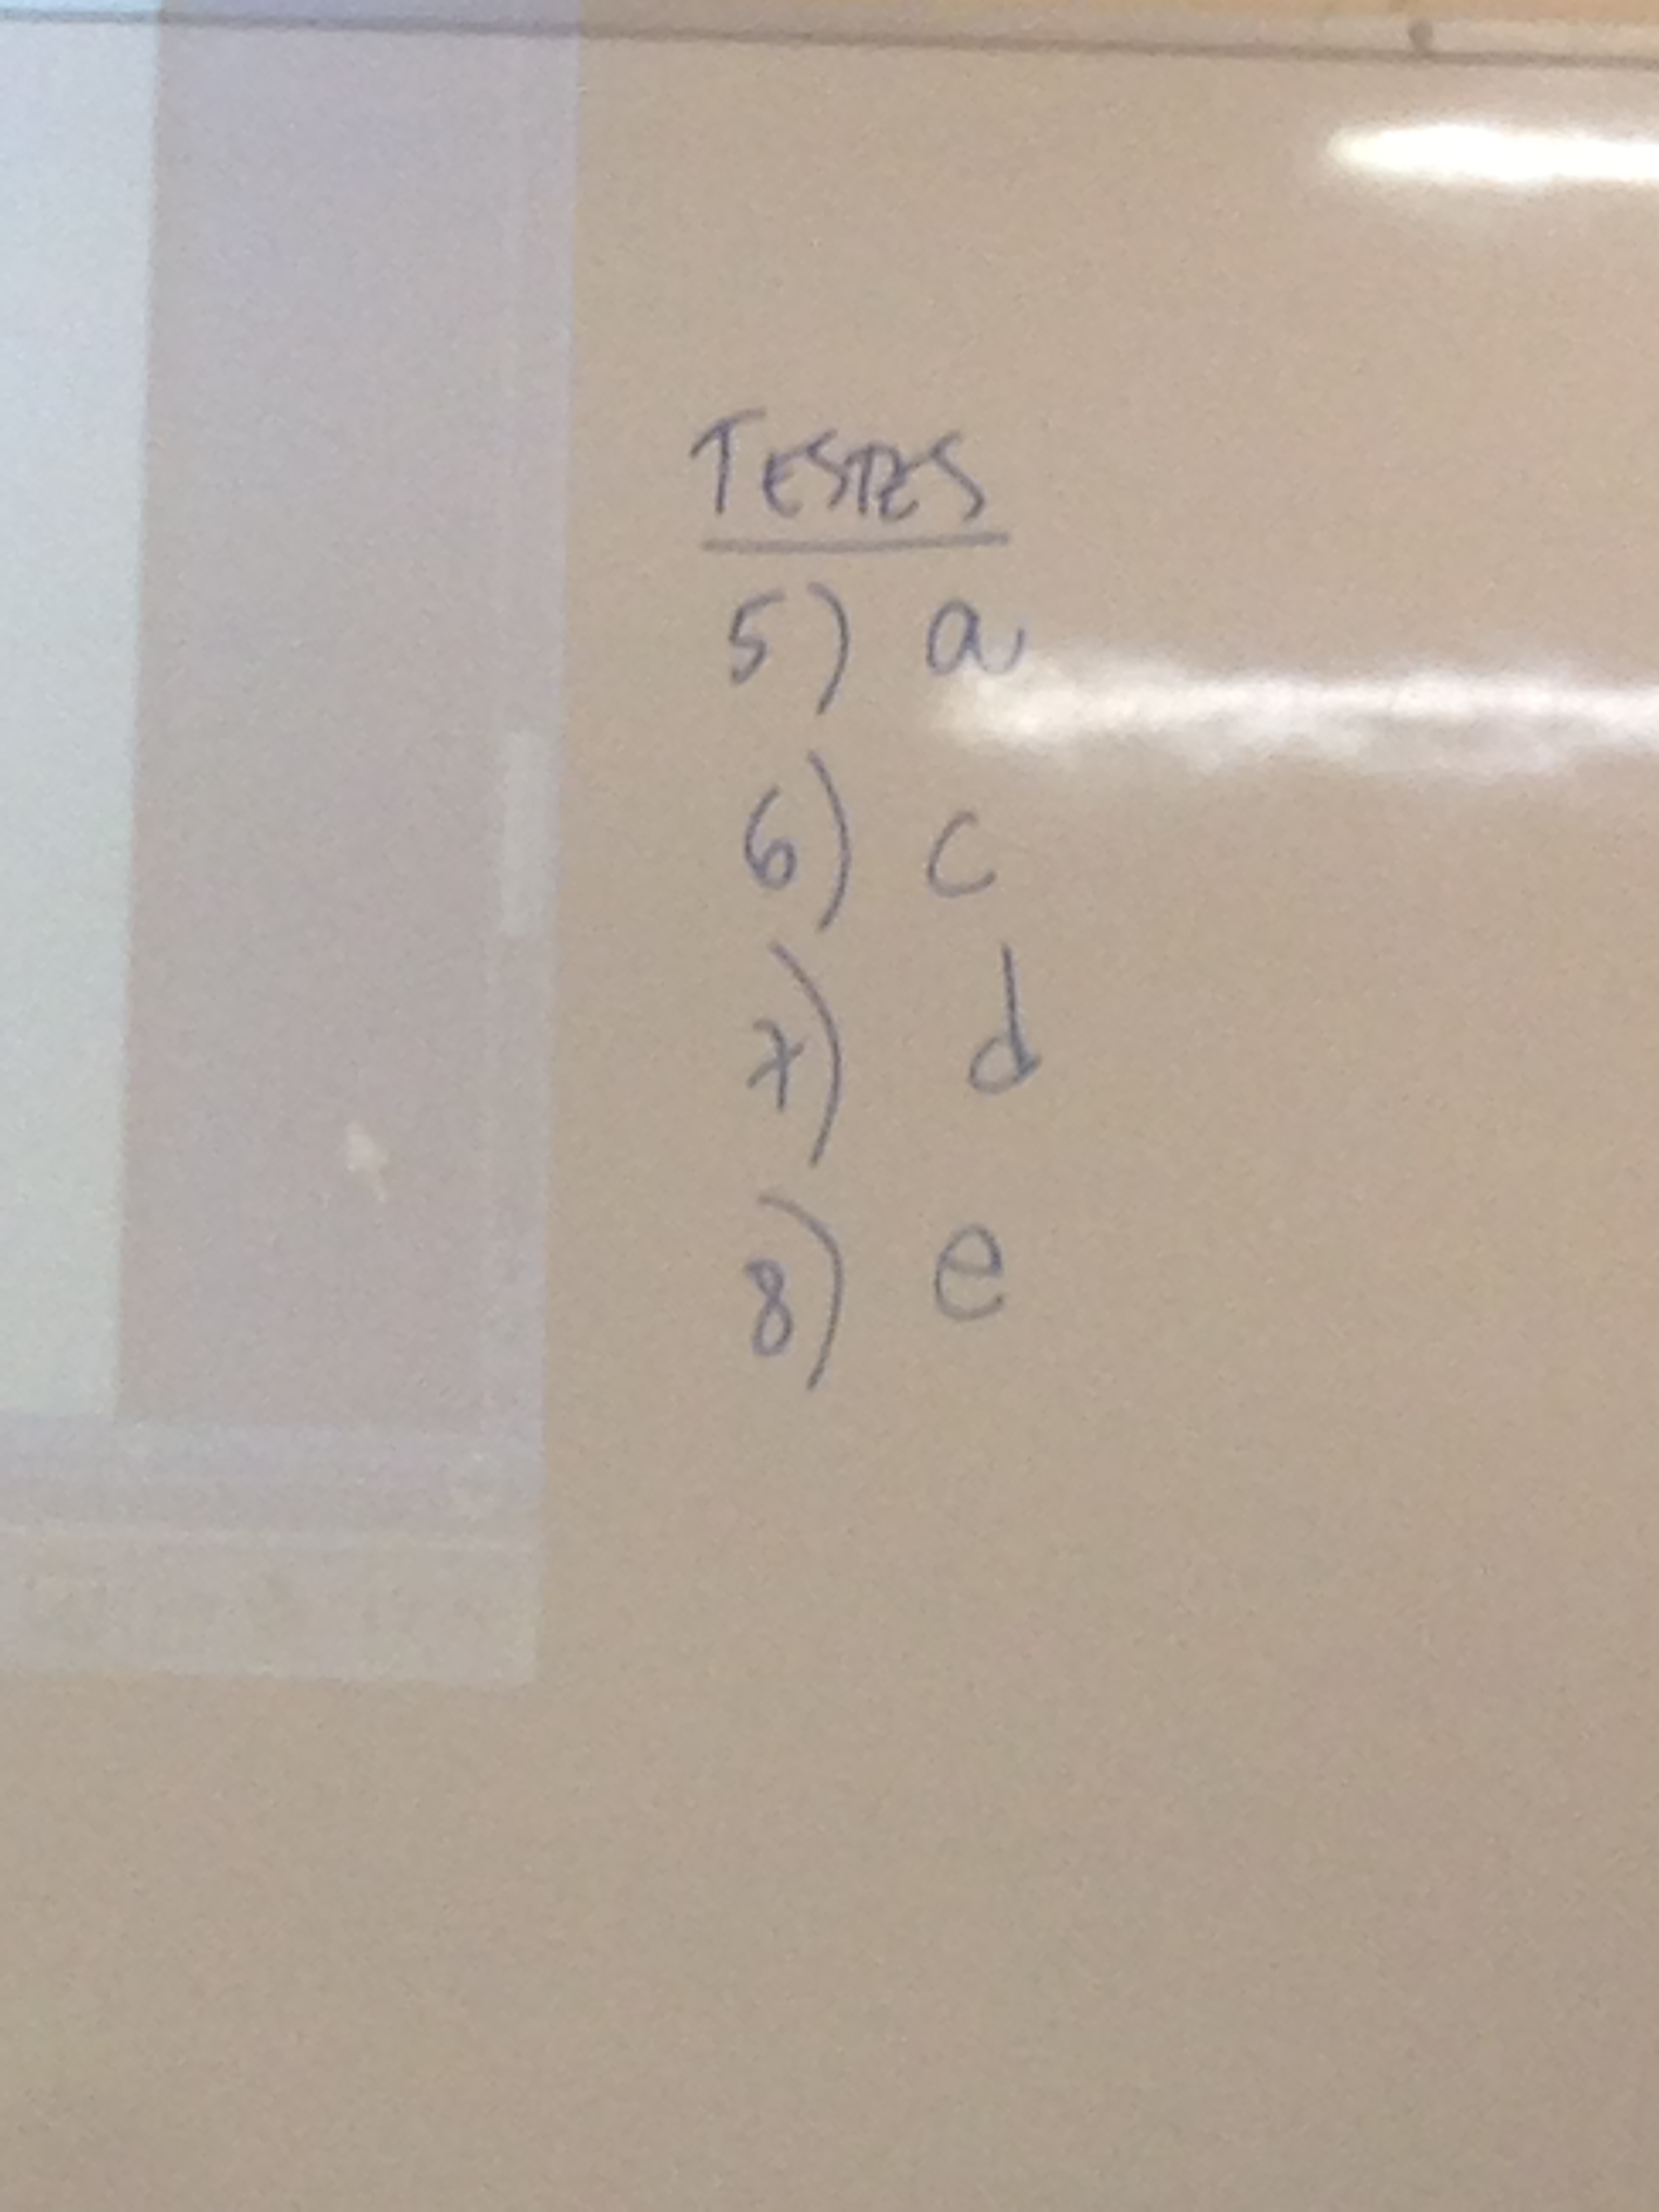 TESTES
5) a
6) c
7) d
8) e